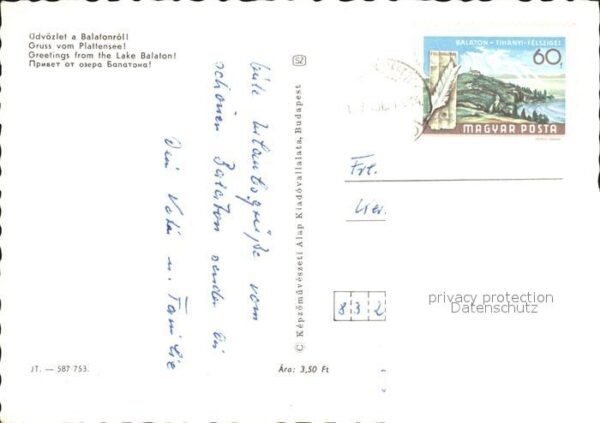 Üdvözlet a Balatonról!
Gruss vom Plattensee!
Greetings from the Lake Balaton!
Привет от озера Балатона!
BALATON - TIHANYI-FÉLSZIGET
60f
MAGYAR POSTA
Gute Urlaubsgrüße vom
schönen Balaton sendet Dir
Dein Vati u. Familie
© Képzőművészeti Alap Kiadóvallalata, Budapest
Frl.
832
privacy protection
Datenschutz
JT. — 587 753.
Ára: 3,50 Ft